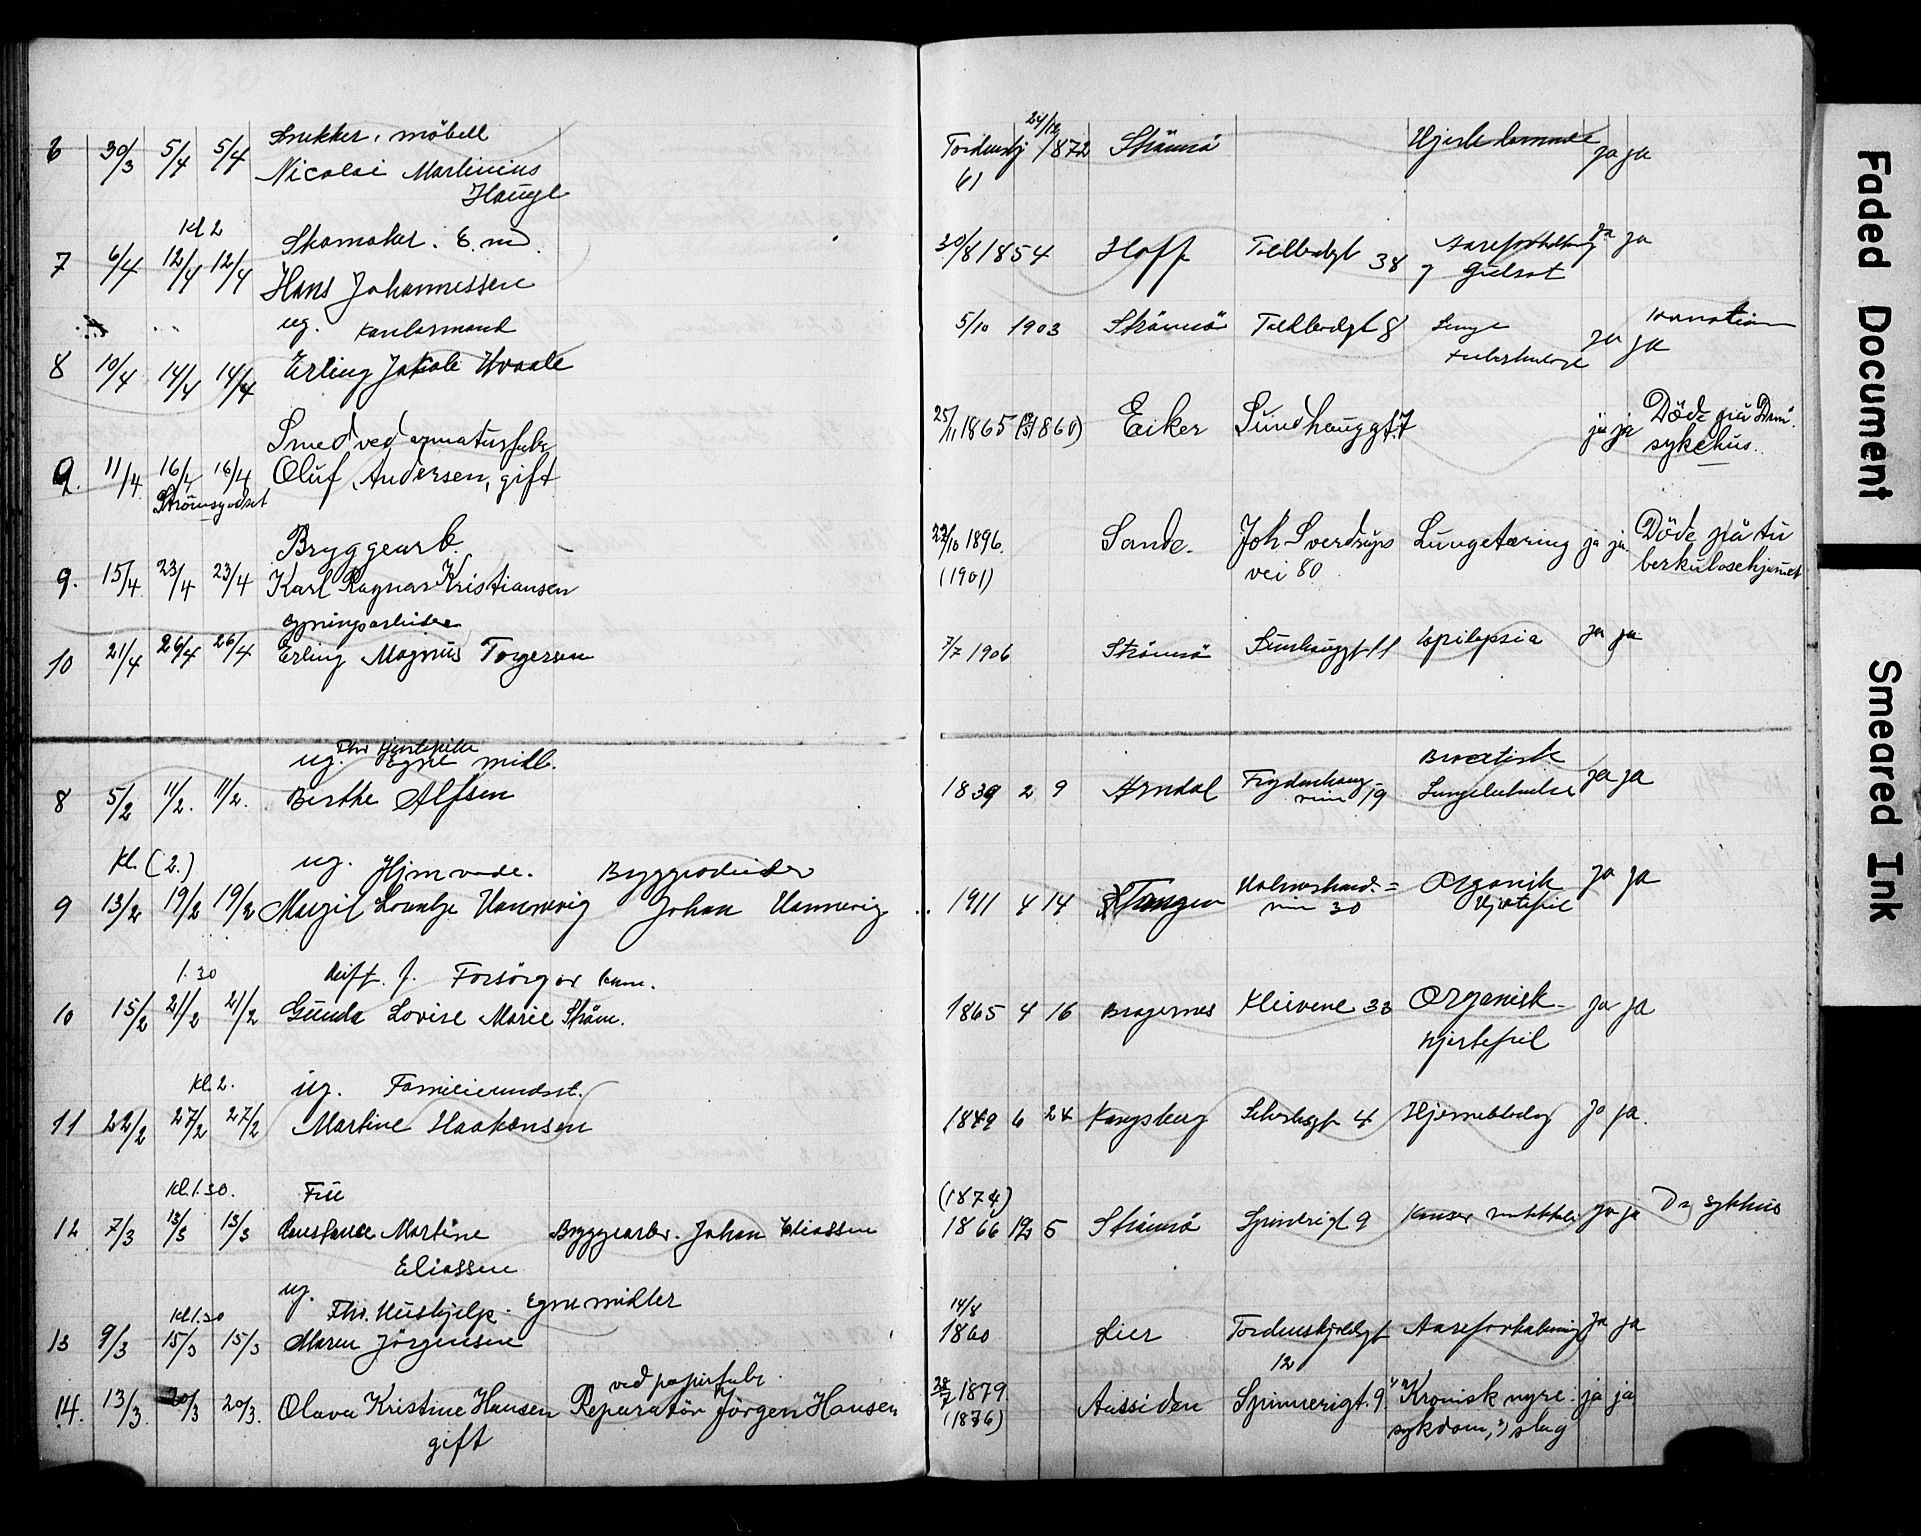 Snekker, möbell
6 30/3 5/4 5/4 Nicolai Martinius
Haugl
Tordenskj 24/12 1872 Strömsö ja ja
61
Kl 2 Skomaker. E. m
7 6/4 12/4 12/4 Hans Johannessen
30/8 1854 Hoff Tollbodgt 38 Aareforkalkning ja ja
ug. Kontormand
8 10/4 14/4 14/4 Erling Jakob Hvaale
5/10 1903 Strömsö Tollbodgt 8 Lunge ja ja
tuberkulose
Smed ved armaturfabr
9. 11/4 16/4 16/4 Oluf Andersen, gift
Strömsgodset
25/11 1865 (1860) Eiker Sundhauggt. 7 ja ja Döde på Drm.
sykehus.
Bryggearb.
9. 15/4 23/4 23/4 Karl Ragnar Kristiansen
22/10 1896. Sande. Joh Sverdrups Lungetæring ja ja Döde på tu
(1901) vei 80 berkulosehjemet
10 21/4 26/4 26/4 Erling Magnus Torgersen
7/7 1906 Strömsö Sundhauggt 11 Epilepsia ja ja
ug. Egne midl.
8 5/2 11/2. 11/2. Berthe Alfsen
1839 2 9 Arndal Frydenhaug ja ja
19
Kl. (2.) ug. Hjemvær. Byggearbeider
9 13/2 19/2 19/2 Margit Lovntze Hannevig Johan Hannevig
1911 4 14 Tangen Organik ja ja
30 Hjertefeil
1.30 Gift. f. Forsörger
10 15/2 21/2 21/2 Gunda Lovise Marie Ström.
1865 4 16 Bragernes Kleivene 33 Organisk ja ja
hjertefeil
Kl. 2. ug. Familieundst.
11 22/2 27/2 27/2 Martine Haakensen
1849 6 24 Kongsberg 4 Hjerneblödng ja ja.
Kl. 1.30. Fru
12 7/3 13/3 13/3 Martine Bryggearbr. Johan Eliassen
Eliassen
(1874)
1866 12 5 Strömsö Spinerigt 9 ja ja Dr. sykhus
ug.
Kl 1.30 Fhv. Hushjelp. Egne midler
13 9/3 15/3 15/3 Maren Jörgensen
14/8
1860 Lier Tordenskjoldgt Aareforkalkning ja ja
12
ved papirfabr.
14. 13/3. 20/3 20/3. Olava Kristine Hansen Reparatör Jörgen Hansen
gift
28/7 1879 Aassiden Spinnerigt. 9 1) Kronisk nyre- ja ja
(1876) sykdom, 2) slag
Faded Document
Smeared Ink